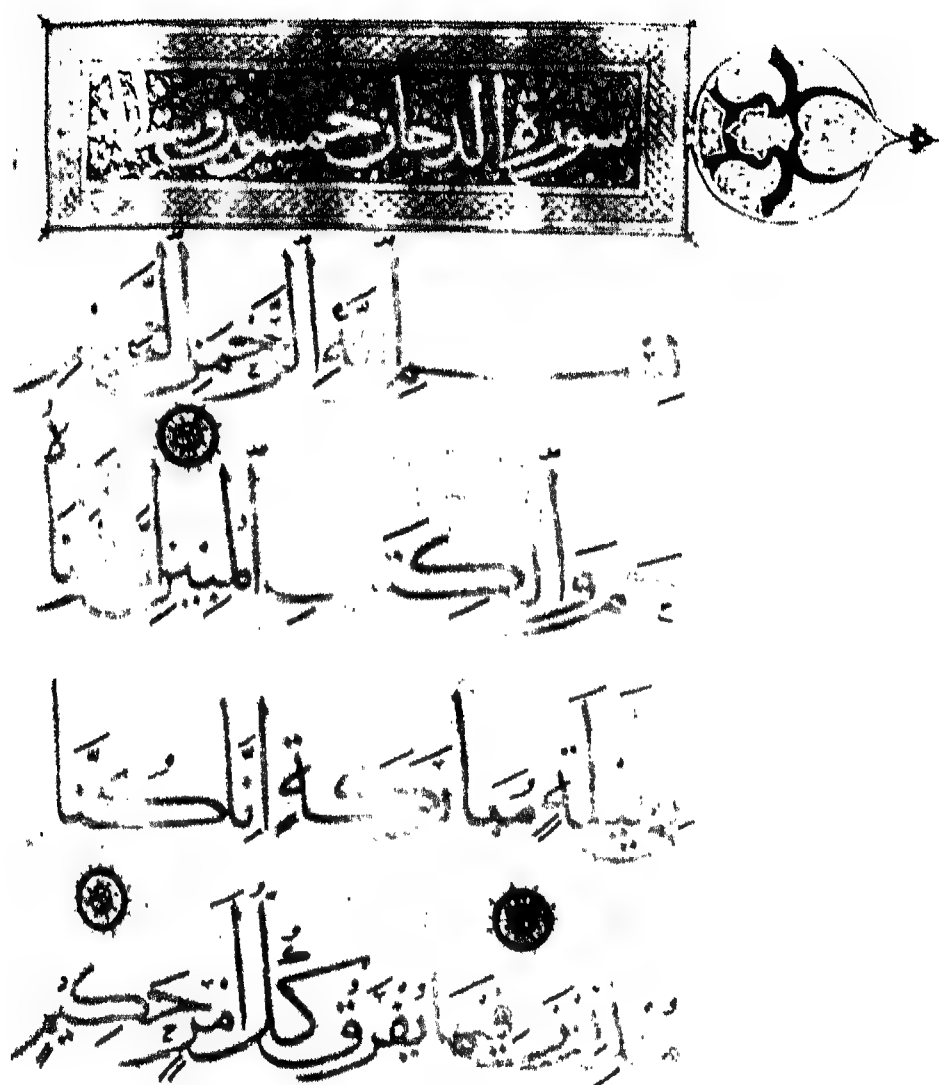 سورة الدخان خمسون وست
بِسْمِ اللَّهِ الرَّحْمَنِ الرَّحِيمِ
حم وَالْكِتَبِ الْمُبِينِ
فِي لَيْلَةٍ مُبَارَكَةٍ إِنَّا كُنَّا
مُنْذِرِينَ فِيهَا يُفْرَقُ كُلُّ أَمْرٍ حَكِيمٍ